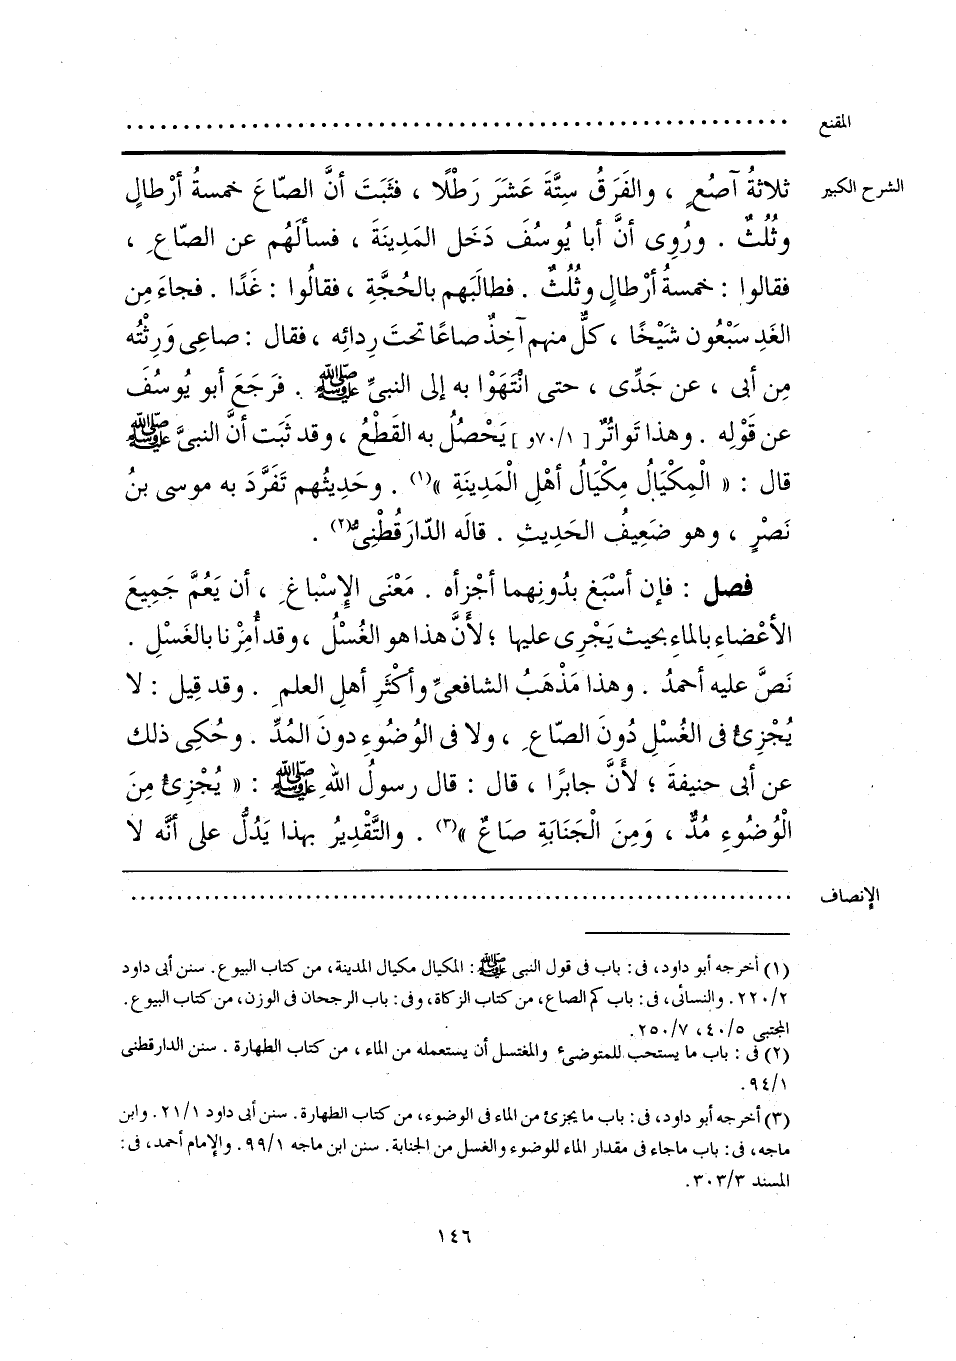 المقنع ............................................................
الشرح الكبير ثلاثةُ آصُعٍ ، والفَرَقُ سِتَّةَ عَشَرَ رَطْلًا ، فثَبَتَ أنَّ الصّاعَ خمسةُ أرْطالٍ
وثُلُثٌ . ورُوِى أنَّ أبا يُوسُفَ دَخَل المَدِينَةَ ، فسألَهُم عن الصّاعِ ،
فقالوا : خمسةُ أرْطالٍ وثُلُثٌ . فطالَبَهم بالحُجَّةِ ، فقالُوا : غَدًا . فجاءَ مِن
الغَدِ سَبْعُون شَيْخًا ، كلٌّ منهم آخِذٌ صاعًا تحتَ رِدائِه ، فقال : صاعِى وَرِثْتُه
مِن أبى ، عن جَدِّى ، حتى انْتَهَوْا به إلى النبىِّ ﷺ . فرَجَعَ أبو يُوسُفَ
عن قَوْلِه . وهذا تَواتُرٌ [ ٧٠/١و ] يَحْصُلُ به القَطْعُ ، وقد ثَبَت أنَّ النبىَّ ﷺ
قال : « الْمِكْيَالُ مِكْيَالُ أهْلِ الْمَدِينَةِ »(١) . وحَدِيثُهم تَفَرَّدَ به موسى بنُ
نَصْرٍ ، وهو ضَعِيفُ الحَدِيثِ . قالَه الدّارَقُطْنِىُّ(٢) .
فصل : فإن أسْبَغ بدُونِهما أجْزأه . مَعْنَى الإِسْباغِ ، أن يَعُمَّ جَمِيعَ
الأعْضاءِ بالماءِ بحيث يَجْرِى عليها ؛ لأَنَّ هذا هو الغُسْلُ ، وقد أُمِرْنا بالغَسْلِ .
نَصَّ عليه أحمدُ . وهذا مَذْهَبُ الشافعىِّ وأكْثَرِ أهلِ العلمِ . وقد قِيل : لا
يُجْزِئُ فى الغُسْلِ دُونَ الصّاعِ ، ولا فى الوُضُوءِ دونَ المُدِّ . وحُكِى ذلك
عن أبى حنيفةَ ؛ لأَنَّ جابرًا ، قال : قال رسولُ اللهِ ﷺ : « يُجْزِئُ مِنَ
الْوُضُوءِ مُدٌّ ، وَمِنَ الْجَنَابَةِ صَاعٌ »(٣) . والتَّقْدِيرُ بهذا يَدُلُّ على أنَّه لا
الإنصاف ............................................................
(١) أخرجه أبو داود، فى: باب فى قول النبى ﷺ : المكيال مكيال المدينة، من كتاب البيوع. سنن أبى داود
٢٢٠/٢. والنسائى، فى: باب كم الصاع، من كتاب الزكاة، وفى: باب الرجحان فى الوزن، من كتاب البيوع.
المجتبى ٤٠/٥، ٢٥٠/٧.
(٢) فى : باب ما يستحب للمتوضئ والمغتسل أن يستعمله من الماء ، من كتاب الطهارة . سنن الدارقطنى
٩٤/١.
(٣) أخرجه أبو داود، فى: باب ما يجزئ من الماء فى الوضوء، من كتاب الطهارة. سنن أبى داود ٢١/١. وابن
ماجه، فى: باب ماجاء فى مقدار الماء للوضوء والغسل من الجنابة. سنن ابن ماجه ٩٩/١. والإمام أحمد، فى:
المسند ٣٠٣/٣.
١٤٦